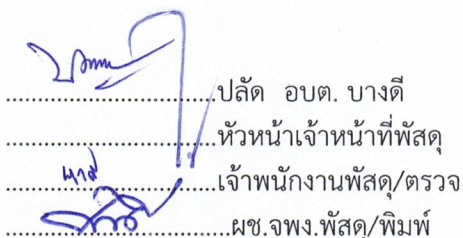 ........................ปลัด อบต. บางดี
........................หัวหน้าเจ้าหน้าที่พัสดุ
........................เจ้าพนักงานพัสดุ/ตรวจ
........................ผช.จพง.พัสดุ/พิมพ์